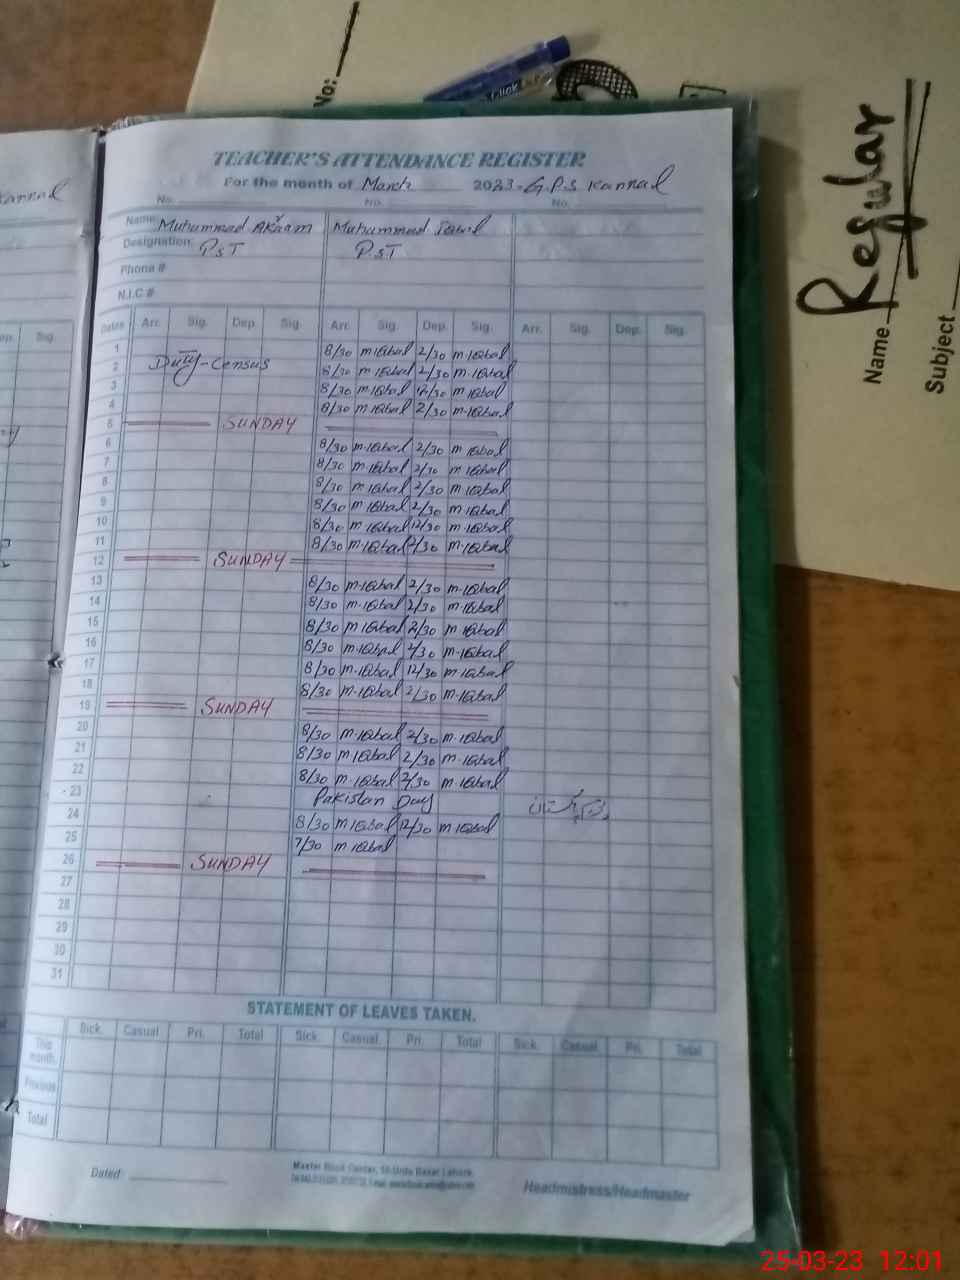 No:
Click
Regular
Name
Subject
Kannal
Sig.
TEACHER'S ATTENDANCE REGISTER
For the month of March 2023. G.P.S Kannal
No. No. No.
Name Muhammad Akram Muhammad Iqbal
Designation: PST P.ST
Phone #
N.I.C #
Dates Arr. Sig. Dep. Sig. Arr. Sig. Dep. Sig. Arr. Sig. Dep. Sig.
1 8/30 m iqbal 2/30 m iqbal
2 Duty-Census 8/30 m iqbal 2/30 m iqbal
3 8/30 m iqbal 12/30 m iqbal
4 8/30 m iqbal 2/30 m.iqbal
5 SUNDAY
6 8/30 m.iqbal 2/30 m iqbal
7 8/30 m iqbal 2/30 m iqbal
8 8/30 m iqbal 2/30 m iqbal
9 8/30 m iqbal 2/30 m iqbal
10 8/30 m.iqbal 12/30 m iqbal
11 8/30 m.iqbal 2/30 m.iqbal
12 SUNDAY
13 8/30 m.iqbal 2/30 m.iqbal
14 8/30 m.iqbal 2/30 m.iqbal
15 8/30 m iqbal 2/30 m.iqbal
16 8/30 m.iqbal 2/30 m.iqbal
17 8/30 m.iqbal 12/30 m.iqbal
18 8/30 m.iqbal 2/30 m.iqbal
19 SUNDAY
20 8/30 m.iqbal 2/30 m.iqbal
21 8/30 m iqbal 2/30 m.iqbal
22 8/30 m.iqbal 2/30 m.iqbal
23 Pakistan Day
24 8/30 m iqbal 12/30 m iqbal
25 7/30 m iqbal
26 SUNDAY
27
28
29
30
31
STATEMENT OF LEAVES TAKEN.
Sick. Casual Pri. Total Sick. Casual Pri. Total Sick. Casual Pri. Total
This month.
Previous
Total
Dated
Master Book Center, Urdu Bazar Lahore.
Headmistress/Headmaster
25-03-23 12:01